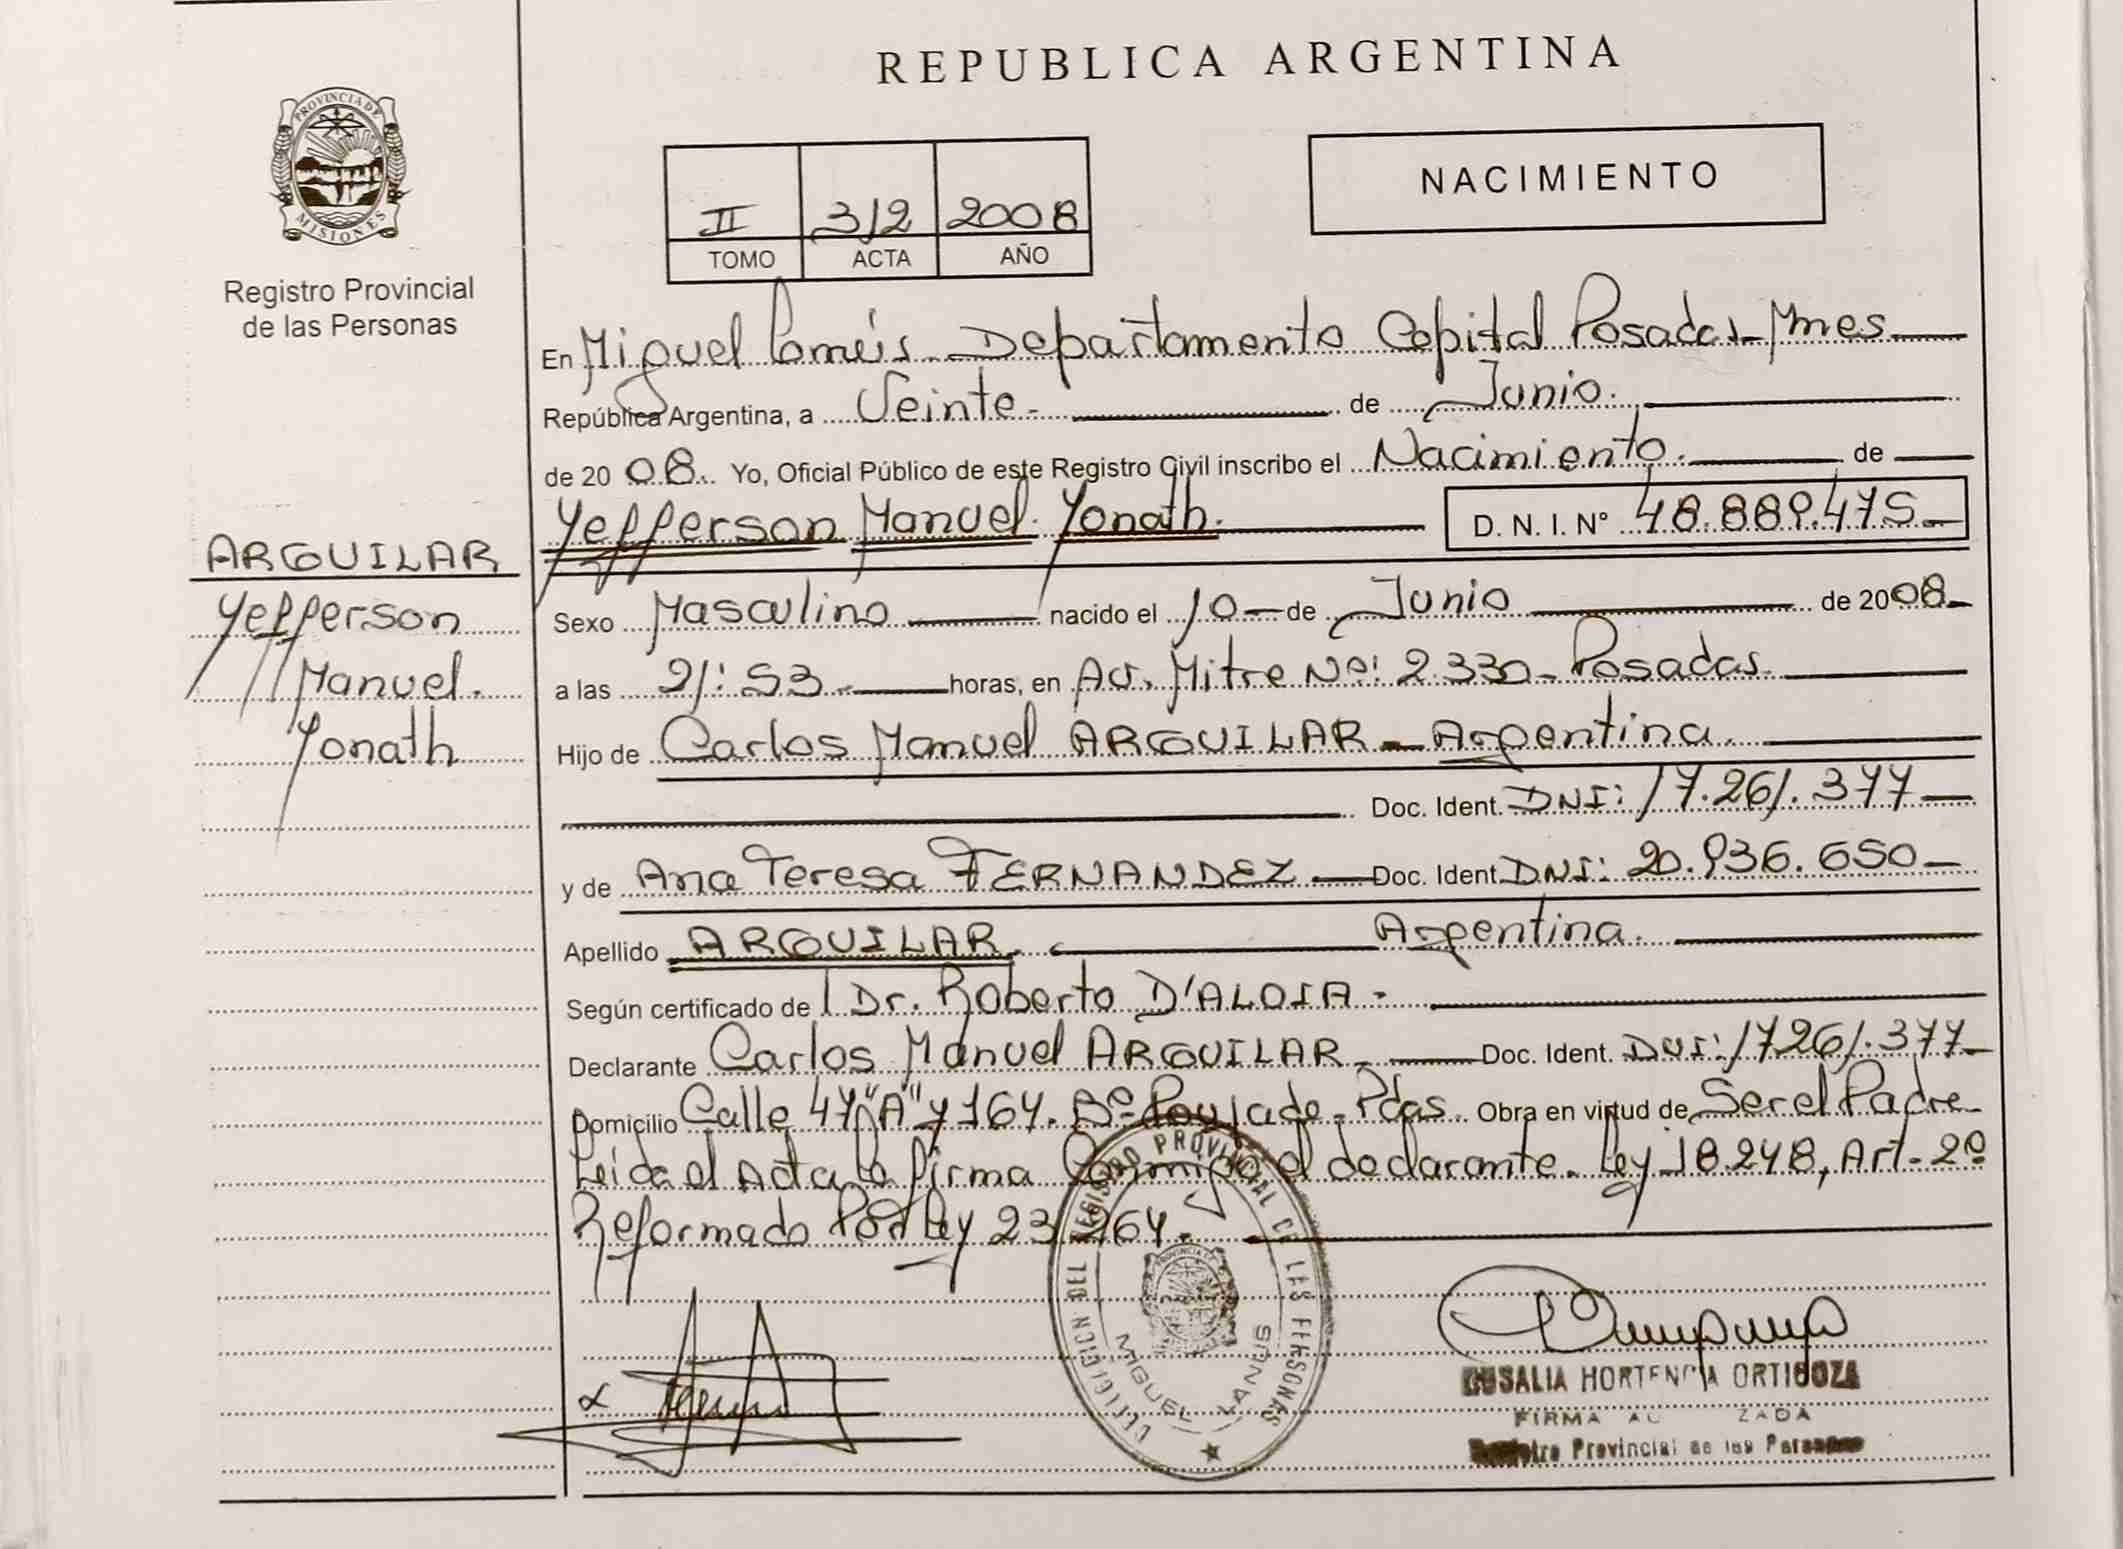 REPUBLICA ARGENTINA
PROVINCIA DE
MISIONES
Registro Provincial
de las Personas
II 312 2008
TOMO ACTA AÑO
NACIMIENTO
En Miguel Lanéis Departamento Capital Posadas Mnes
República Argentina, a Veinte de Junio.
de 2008. Yo, Oficial Público de este Registro Civil inscribo el Nacimiento. de
Yefferson Manuel Yonath. D. N. I. N° 48.889.475
ARGUILAR
Yefferson
Manuel.
Yonath
Sexo Masculino nacido el 10 de Junio de 2008
a las 21:53 horas, en Av. Mitre Nº: 2.330 Posadas.
Hijo de Carlos Manuel ARGUILAR - Argentina.
Doc. Ident. DNI: 17.261.377
y de Ana Teresa FERNANDEZ Doc. Ident. DNI: 20.936.650
Apellido ARGUILAR. Argentina.
Según certificado de Dr. Roberto D'ALOIA -
Declarante Carlos Manuel ARGUILAR. Doc. Ident. DNI: 17261.377
Domicilio Calle 47 "A" y 164. Bº Poujade - Pdas. Obra en virtud de Ser el Padre
Leida el Acta la firma Conmigo el declarante. Ley 18248, Art. 2º
Reformado Por Ley 23.264.
DELEGACION DEL REGISTRO PROVINCIAL DE LAS PERSONAS
MIGUEL LANEIS
HORTENCIA ORTIGOZA
FIRMA
Registro Provincial de las Personas